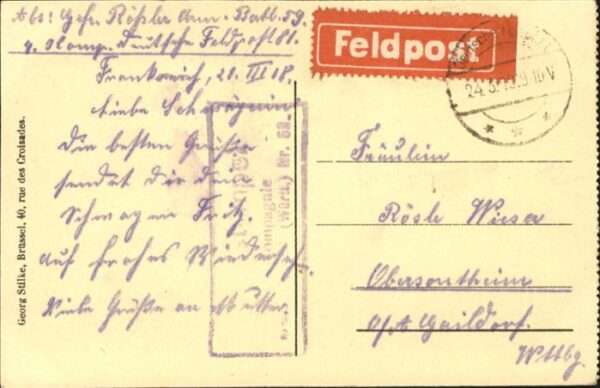 Abs: Gefr. Rößler Arm. Batl. 59
4. Komp. Deutsche Feldpost 81.
Feldpost
Frankreich, 21. III 18.
24.3.
10V
Liebe Schwägerin
Die besten Grüße
sendet dir dein
Schwager Fritz.
Auf frohes Wiederseh.
Viele Grüße an Mutter.
Kompagnie
(Württ.) Nr.
Fräulein
Rösle Wieser
Obersontheim
O/A Gaildorf.
Wttbg.
Georg Stilke, Brüssel, 40, rue des Croisades.